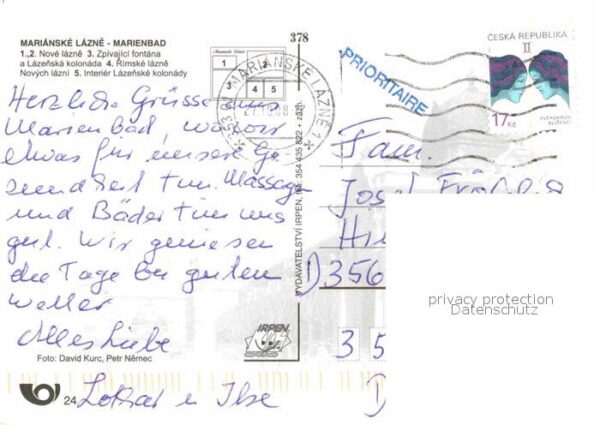 MARIÁNSKÉ LÁZNĚ - MARIENBAD
1.,2. Nové lázně 3. Zpívající fontána
a Lázeňská kolonáda 4. Římské lázně
Nových lázní 5. Interiér Lázeňské kolonády
Herzliche Grüsse aus
Marienbad, wo wir
etwas für unsere Ge
sundheit tun. Massagen
und Bäder tun uns
gut. Wir geniesen
die Tage bei guten
Wetter
Alles Liebe
Lothar u Ilse
Foto: David Kurc, Petr Němec
24
378
Mariánské Lázně
1
2
3
4
5
353 01 MARIÁNSKÉ LÁZNĚ 1
VYDAVATELSTVÍ IRPEN, tel.: 354 435 822
IRPEN
PRIORITAIRE
ČESKÁ REPUBLIKA
II
17 Kč
ZVĚROKRUH
BLÍŽENCI
Fam.
Josef
D 356
3 5
D
privacy protection
Datenschutz